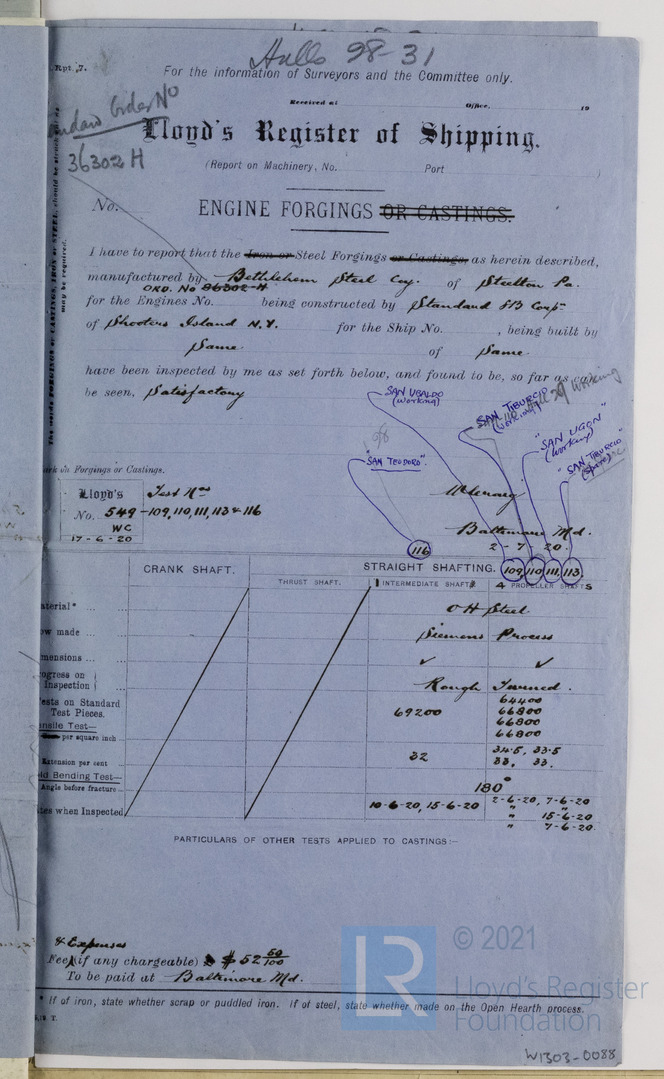 Hulls 98-31
Rpt. 7.
For the information of Surveyors and the Committee only.
Received at Office, 19
Order No
36302 H
Lloyd's Register of Shipping.
(Report on Machinery, No. Port )
No. ENGINE FORGINGS OR CASTINGS.
I have to report that the Iron or Steel Forgings or Castings, as herein described,
manufactured by Bethlehem Steel Coy. of Steelton Pa.
ORD. No 36302-H
for the Engines No. being constructed by Standard SB Corpn
of Shooters Island N.Y. for the Ship No. , being built by
Same of Same
have been inspected by me as set forth below, and found to be, so far as can
be seen, Satisfactory
The words FORGINGS or CASTINGS, IRON or STEEL, should be struck
may be required.
SAN UBALDO
(working)
SAN TIBURCIO
(working)
"SAN UGON"
(working)
"SAN TIBURCIO"
(spare)
98
"SAN TEODORO".
Mark on Forgings or Castings.
Lloyd's Test Nos
No. 549 -109, 110, 111, 113 & 116
WC
17-6-20
Baltimore Md.
2-7-20
116 109, 110, 111, 113.
CRANK SHAFT. STRAIGHT SHAFTING.
THRUST SHAFT. 1 INTERMEDIATE SHAFT 4 PROPELLER SHAFTS
Material* ... OH Steel
How made ... Siemens Process
Dimensions ... ✓ ✓
Progress on
Inspection Rough Turned.
Tests on Standard 64400
Test Pieces. 69200 66800
Tensile Test— 66800
per square inch 66800
Extension per cent 32 34.5, 33.5
33, 33.
Cold Bending Test—
Angle before fracture 180°
Dates when Inspected 10-6-20, 15-6-20 2-6-20, 7-6-20
" 15-6-20
" 7-6-20
PARTICULARS OF OTHER TESTS APPLIED TO CASTINGS:—
& Expenses
Fee (if any chargeable) $ 52 50/100
To be paid at Baltimore Md.
* If of iron, state whether scrap or puddled iron. If of steel, state whether made on the Open Hearth process.
LR © 2021
Lloyd's Register
Foundation
W1303-0088